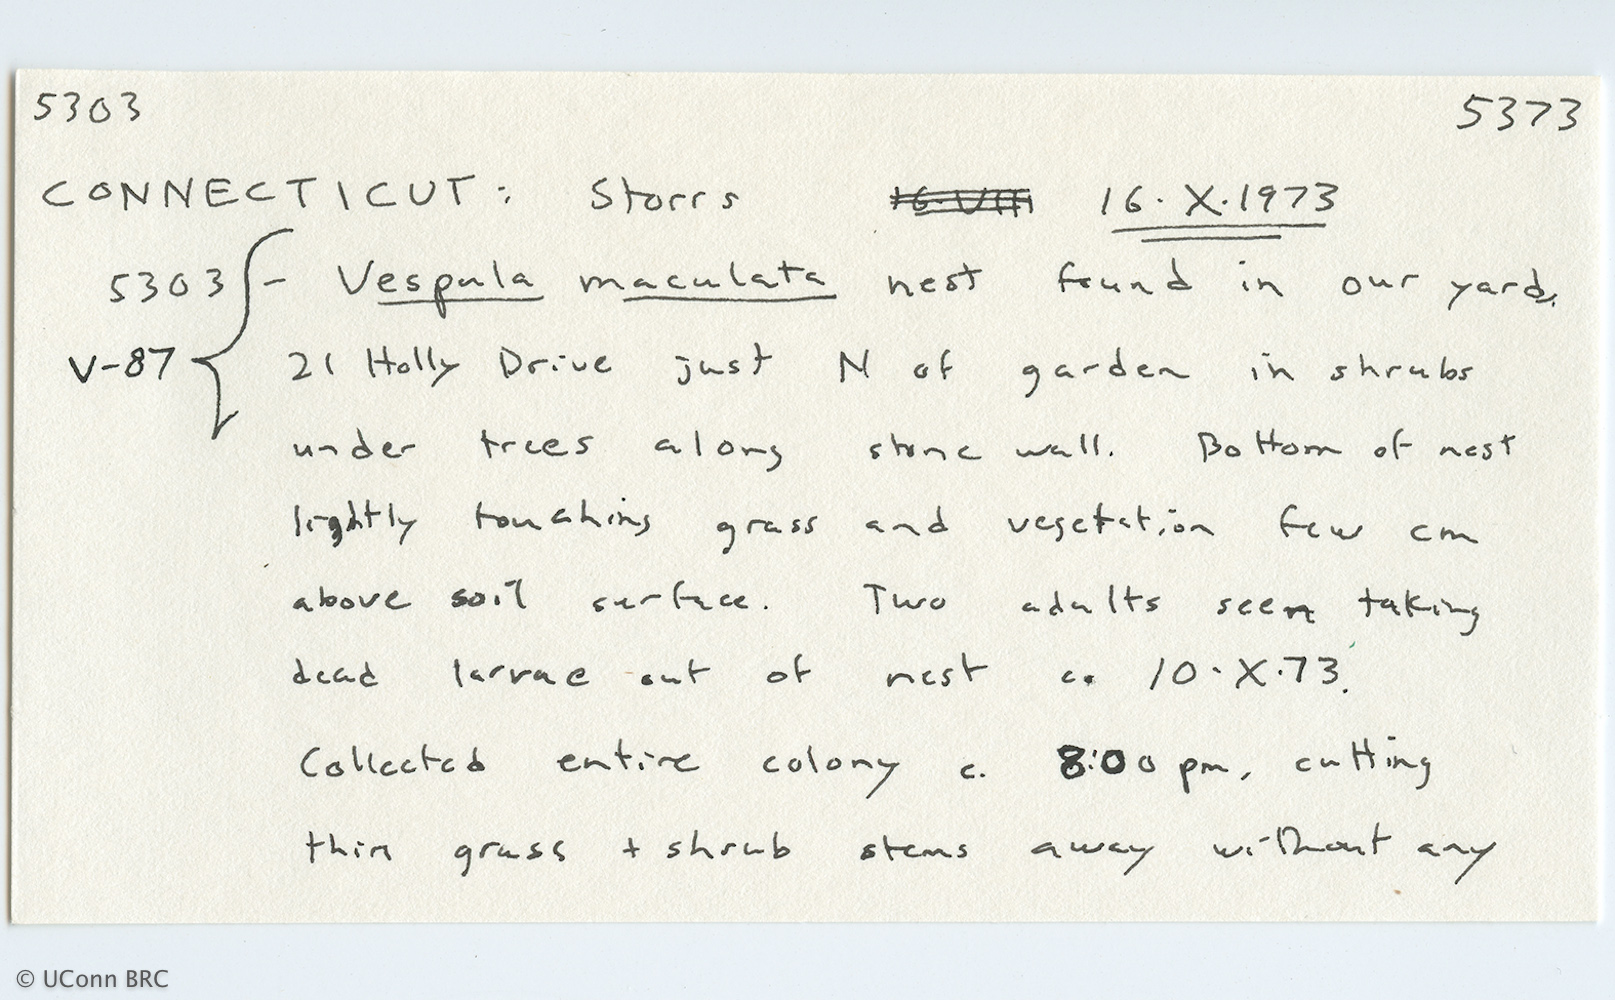 5303 5373
CONNECTICUT: Storrs 16.X.1973
5303 - Vespula maculata nest found in our yard,
V-87 21 Holly Drive just N of garden in shrubs
under trees along stone wall. Bottom of nest
lightly touching grass and vegetation few cm
above soil surface. Two adults seen taking
dead larvae out of nest c. 10.X.73.
Collected entire colony c. 8:00 pm, cutting
thin grass + shrub stems away without any
© UConn BRC